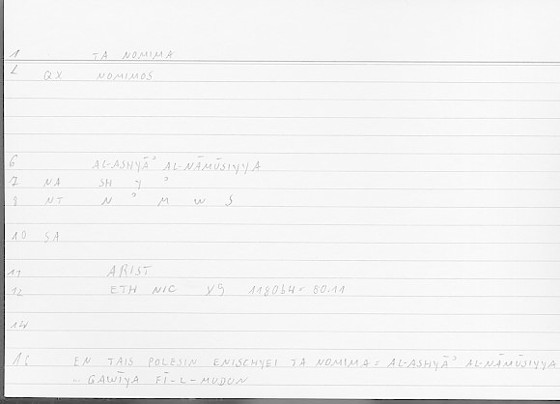 1 TA NOMIMA
2 QX NOMIMOS
6 AL-ASHYĀʾ AL-NĀMŪSIYYA
7 NA SH Y ʾ
8 NT N ʾ M W S
10 SA
11 ARIST
12 ETH NIC 1180b4 = 80.11
14
16 EN TAIS POLESIN ENISCHYEI TA NOMIMA = AL-ASHYĀʾ AL-NĀMŪSIYYA
QAWĪYA FĪ-L-MUDUN